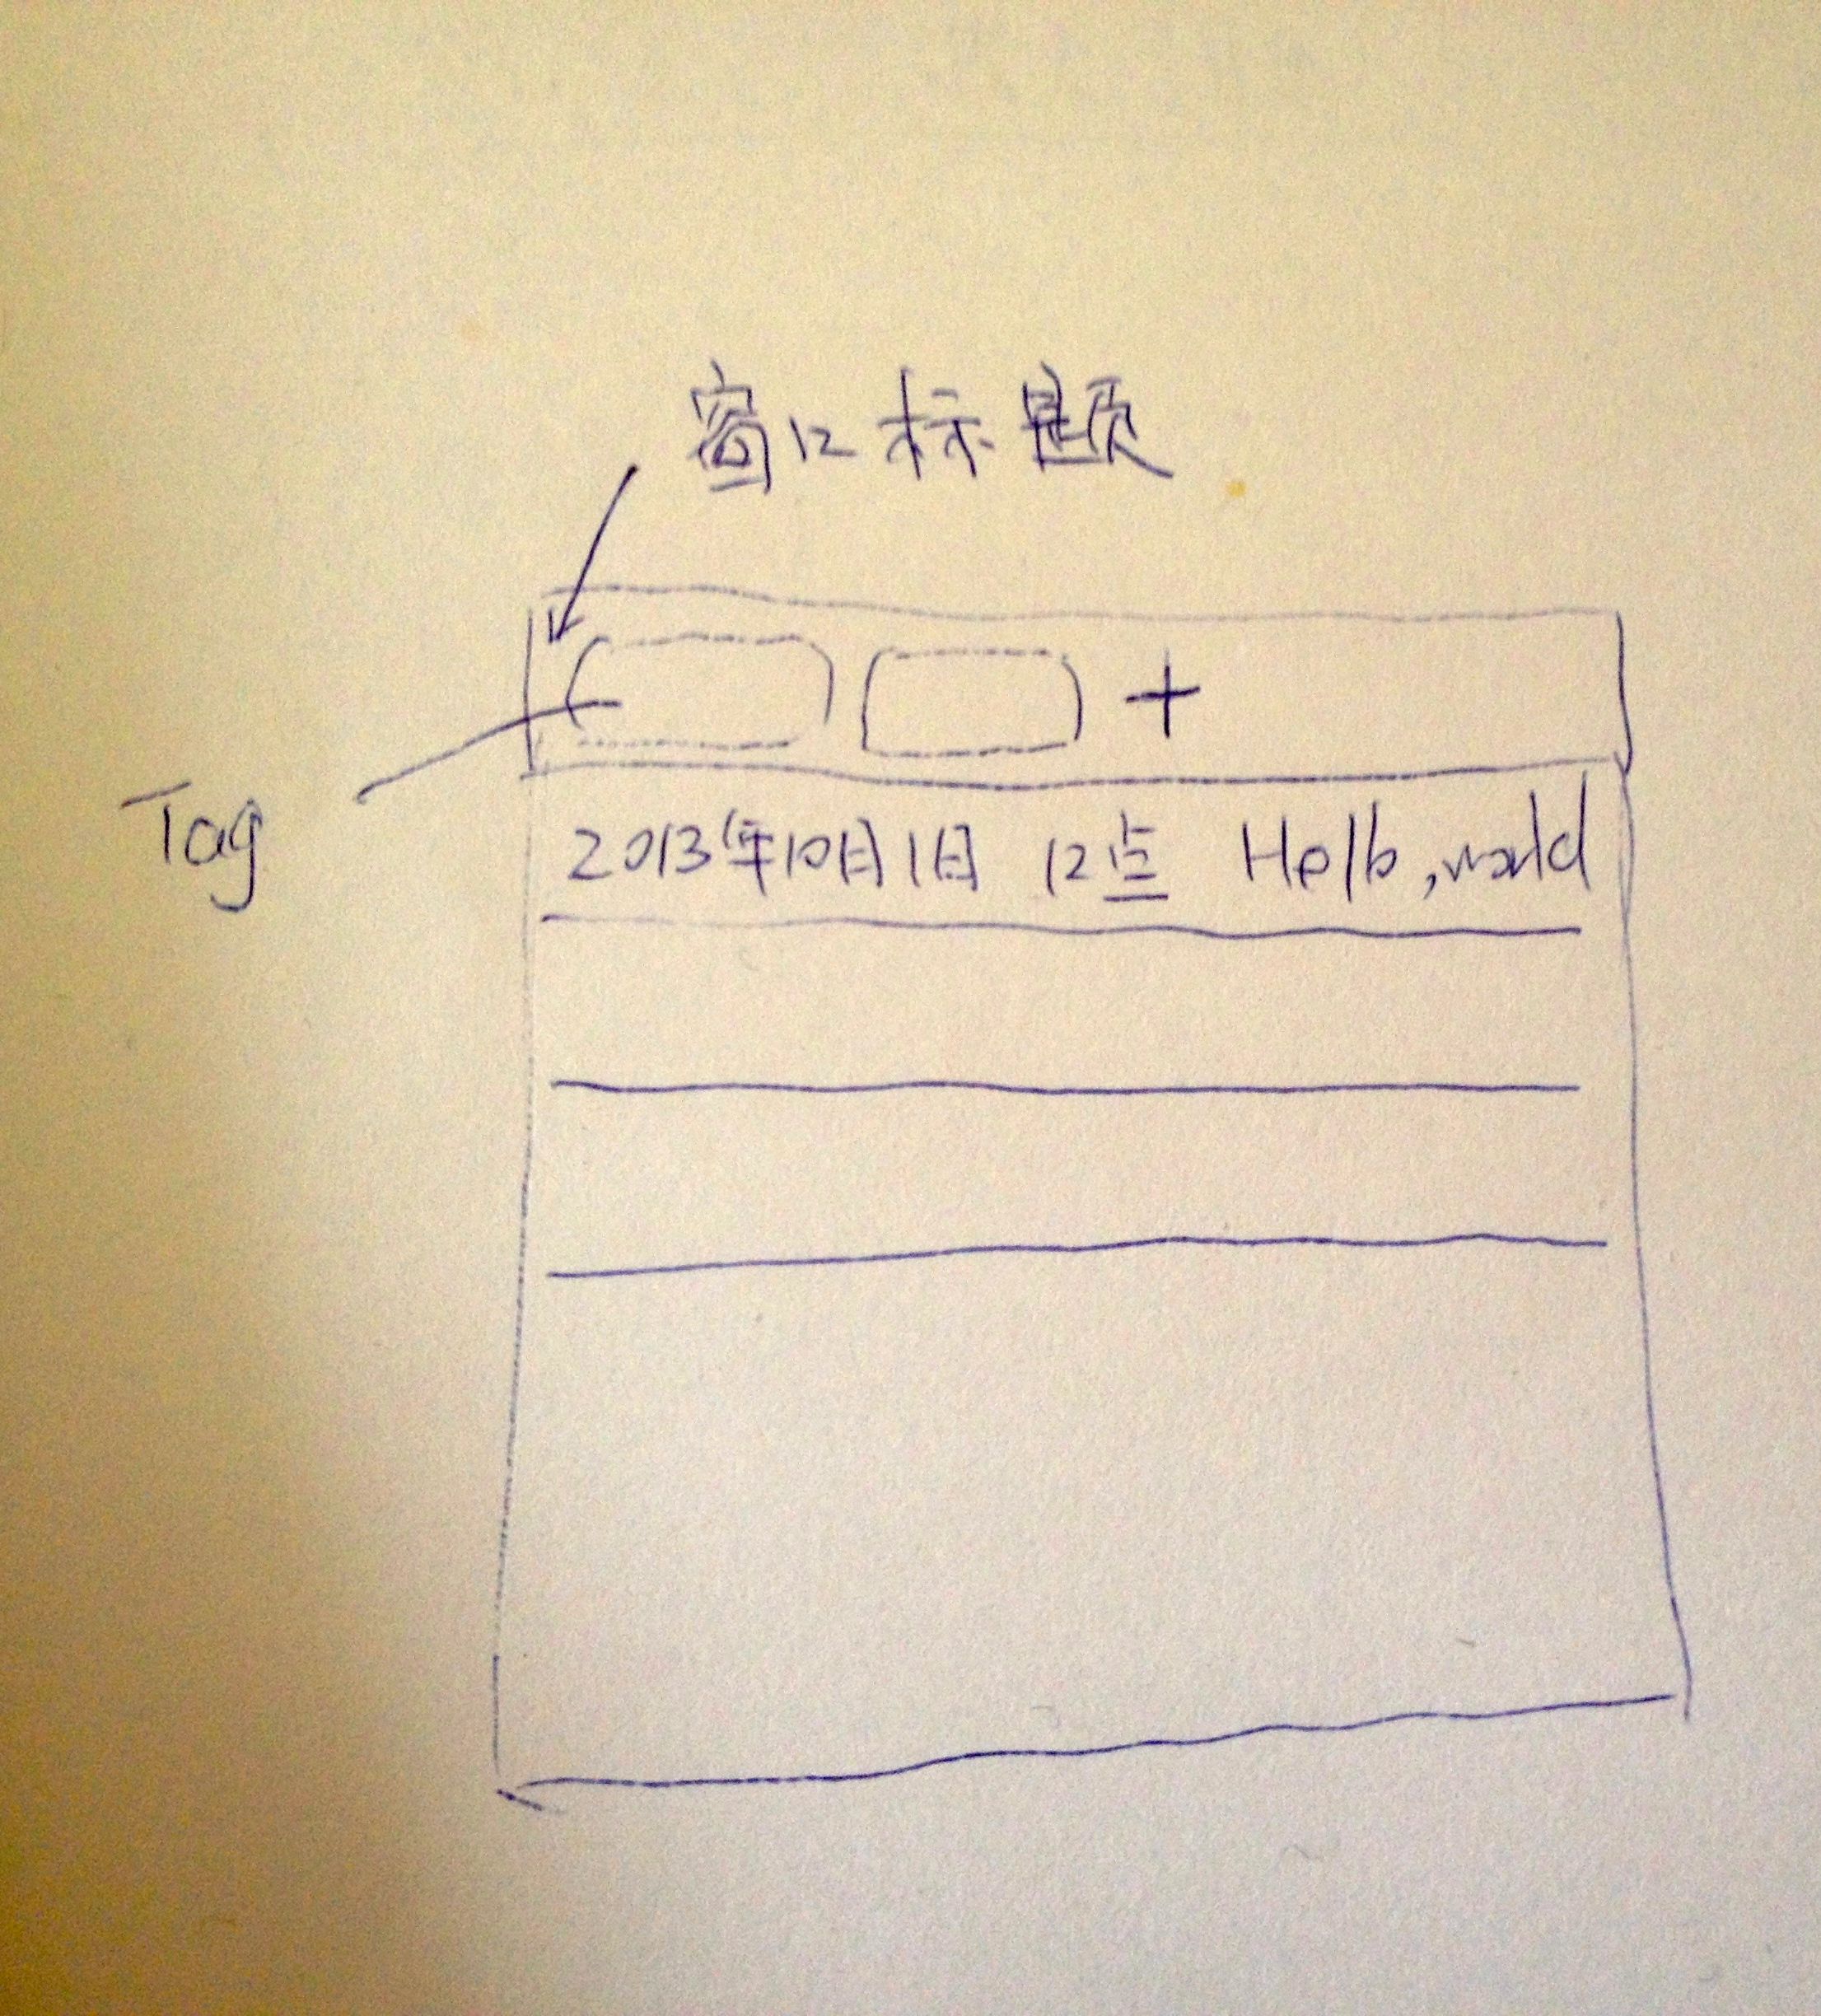 窗口标题
+
Tag
2013年10月1日 12点 Hello,world